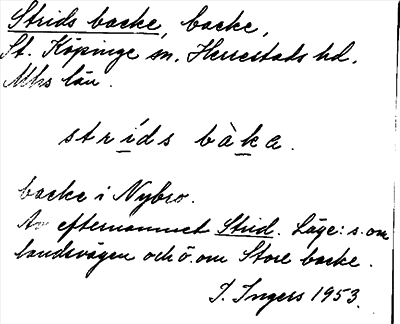 Strids backe, backe,
St. Köpinge sn, Herrestads hd.
Mhs län.
stríds bàka.
backe i Nybro.
Av efternamnet Strid. Läge: s. om
landsvägen och ö. om Store backe.
I. Ingers 1953.